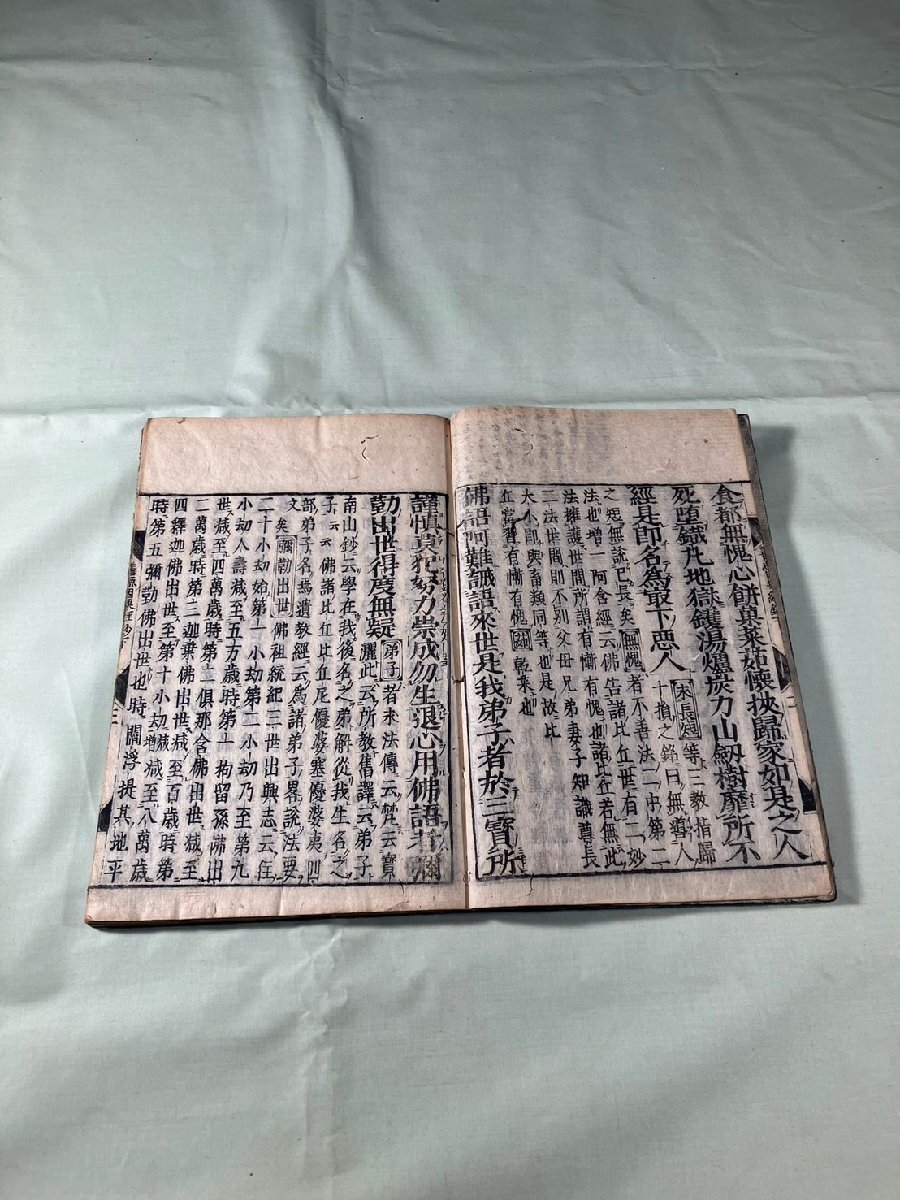 食都無愧心餅菓菜茹懷挾歸家如是之人
死墮鐵丸地獄鑊湯爐炭刀山劒樹靡所不
經是即名為最下惡人
等三教指歸
十損之餘日無尊人
之短無說己長矣無愧者不善法
法也增一阿含經云佛告諸比丘世有二妙
法擁護世間所謂有慚有愧也諸比丘若無此
二法世間則不別父母兄弟妻子知識尊長
大小則與畜類同等也是故比
丘當習有慚有愧乾來也
佛語阿難誡語來世是我弟子者於三寶所
謹慎莫犯努力崇成勿生退心用佛語者彌
勒出世得度無疑
弟子者末法傳云梵云寶
灑此云所教舊譯云弟子
南山鈔云學在我後名之弟解從我生名之
子云云佛諸比丘比丘尼優婆塞優婆夷四
部弟子名焉遺教經云為諸弟子畧說法要
文矣彌勒出世佛祖統紀三世出興志云住
二十小劫始第一小劫第二小劫乃至第九
小劫人壽減至五万歲時第一拘留孫佛出
世減至四萬歲時第二俱那含佛出世減至
二萬歲時第三迦葉佛出世減至百歲時第
四釋迦佛出世至第十小劫增減至八萬歲
時第五彌勒佛出世也時閻浮提其地平